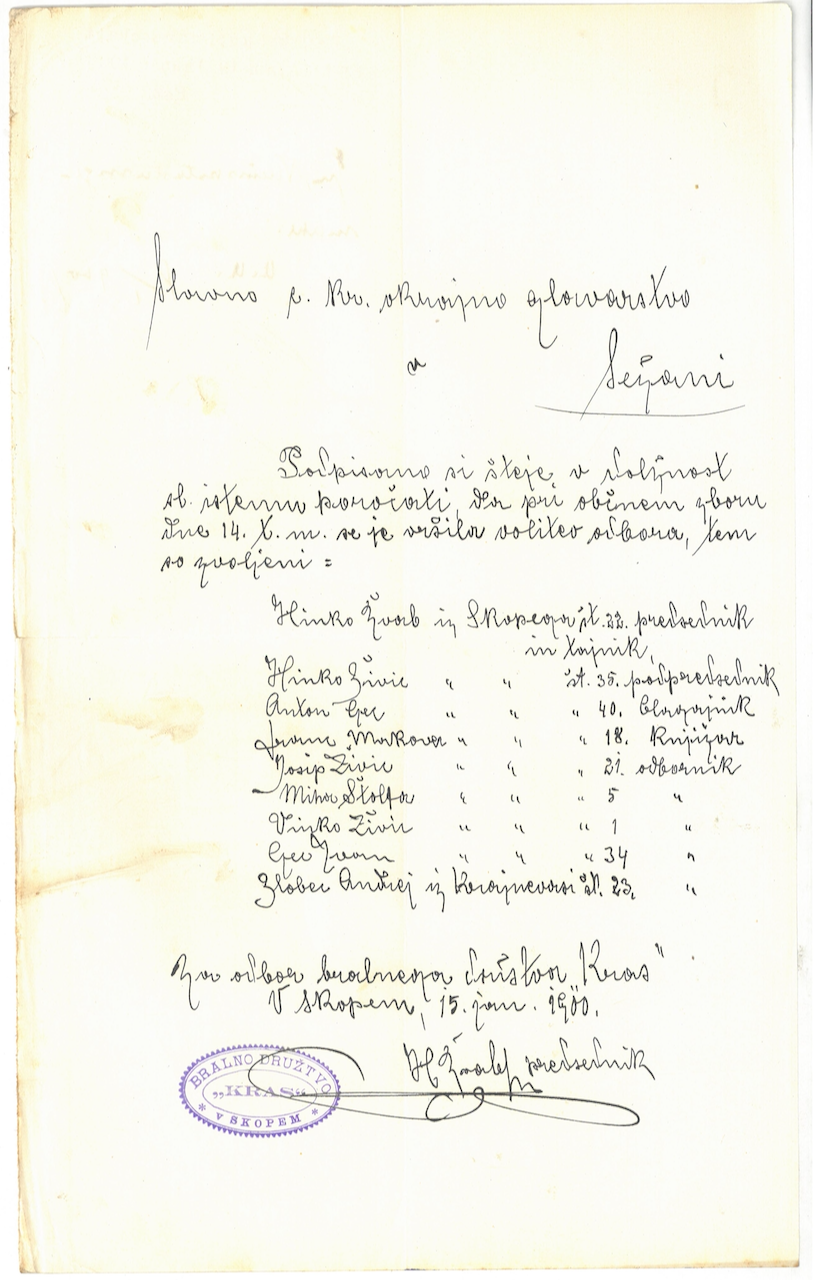 Slavno c. kr. okrajno glavarstvo
v
Sežani
Podpisano si šteje v dolžnost
sl. istemu poročati, da pri občnem zboru
dne 14. t. m. se je vršila volitev odbora, tem
so zvoljeni =
Hinko Žvab iz Skopega št. 22. predsednik
in tajnik,
Hinko Živic " " št. 35. podpredsednik
Anton Gec " " " 40. blagajnik
Franc Makovec " " " 18. knjižar
Josip Živic " " " 21. odbornik
Miha Štolfa " " " 5 "
Vinko Živic " " " 1 "
Gec Ivan " " " 34 "
Zlobec Andrej iz Krajnevasi št. 23. "
Za odbor bralnega društva "Kras"
V Skopem, 15. jan. 1900.
H Žvab predsednik
BRALNO DRUŽTVO
„KRAS“
* V SKOPEM *